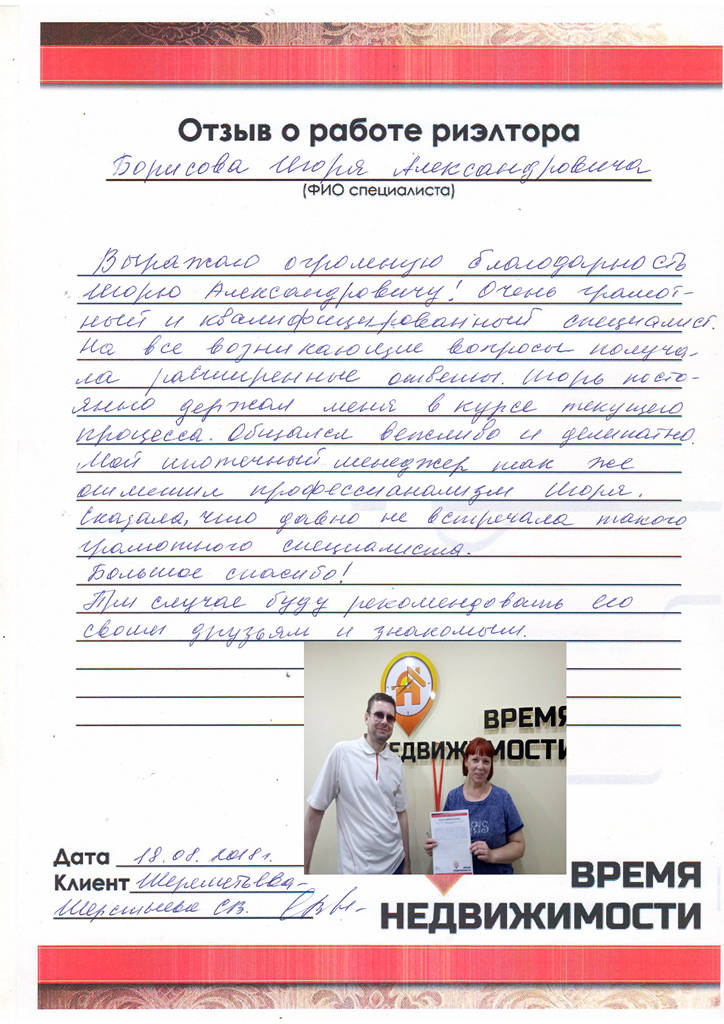 Отзыв о работе риэлтора
Борисова Игоря Александровича
(ФИО специалиста)
Выражаю огромную благодарность
Игорю Александровичу! Очень грамот-
ный и квалифицированный специалист.
На все возникающие вопросы получа-
ла расширенные ответы. Игорь посто-
янно держал меня в курсе текущего
процесса. Общался вежливо и деликатно.
Мой ипотечный менеджер так же
отметил профессианализм Игоря.
Сказала, что давно не встречала такого
грамотного специалиста.
Большое спасибо!
При случае буду рекомендовать его
своим друзьям и знакомым.
ВРЕМЯ
НЕДВИЖИМОСТИ
Дата 18.08.2018г.
Клиент Шереметьева-
С.В.
ВРЕМЯ
НЕДВИЖИМОСТИ